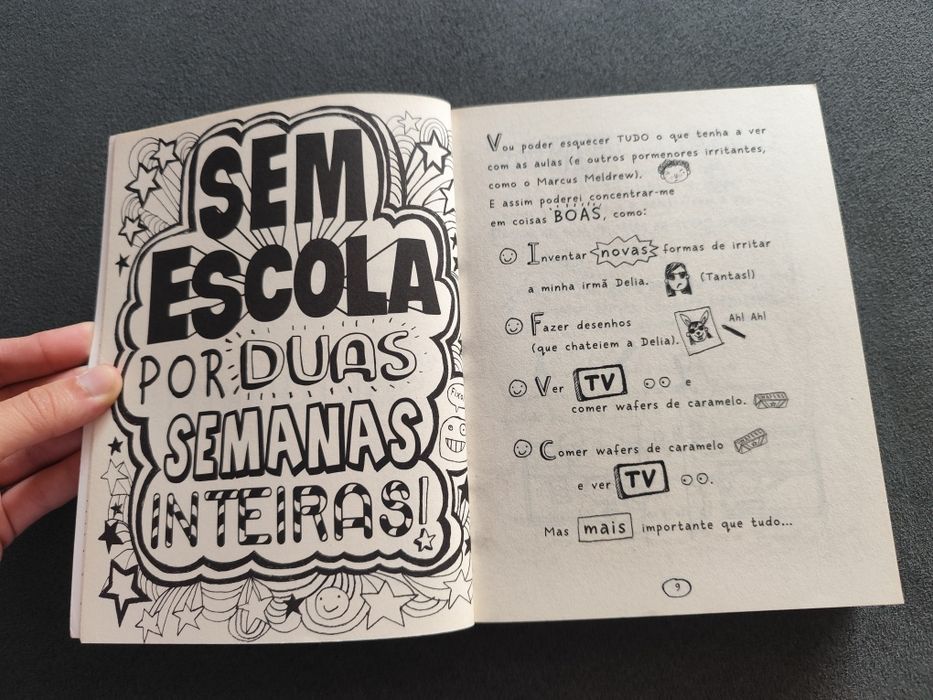 SEM
ESCOLA
POR DUAS
SEMANAS
INTEIRAS!
Vou poder esquecer TUDO o que tenha a ver
com as aulas (e outros pormenores irritantes,
como o Marcus Meldrew).
E assim poderei concentrar-me
em coisas BOAS, como:
Inventar novas formas de irritar
a minha irmã Delia. (Tantas!)
Fazer desenhos Ah! Ah!
(que chateiem a Delia).
Ver TV e
comer wafers de caramelo.
Comer wafers de caramelo
e ver TV.
Mas mais importante que tudo...
9